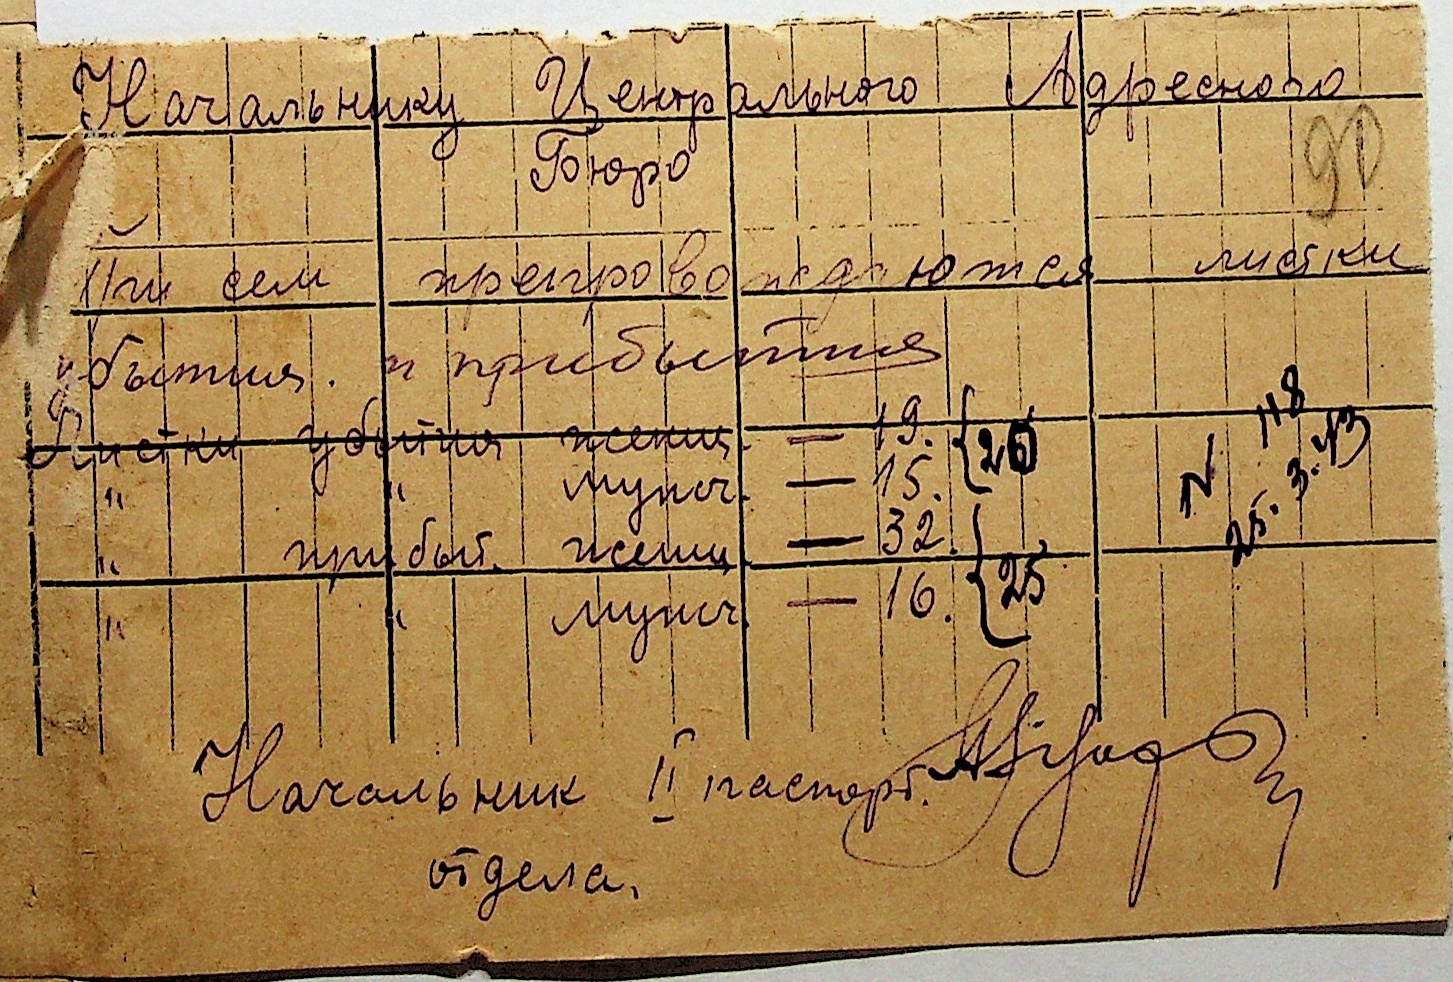 Начальнику Центрального Адресного
Бюро
90
При сем препровождаются листки
убытия. и прибытия
Листки убытия женщ. — 19. {26
" " мужч. — 15.
N 118
25.3.43
" прибыт. женщ. — 32. {25
" " мужч. — 16.
Начальник II паспорт.
отдела.